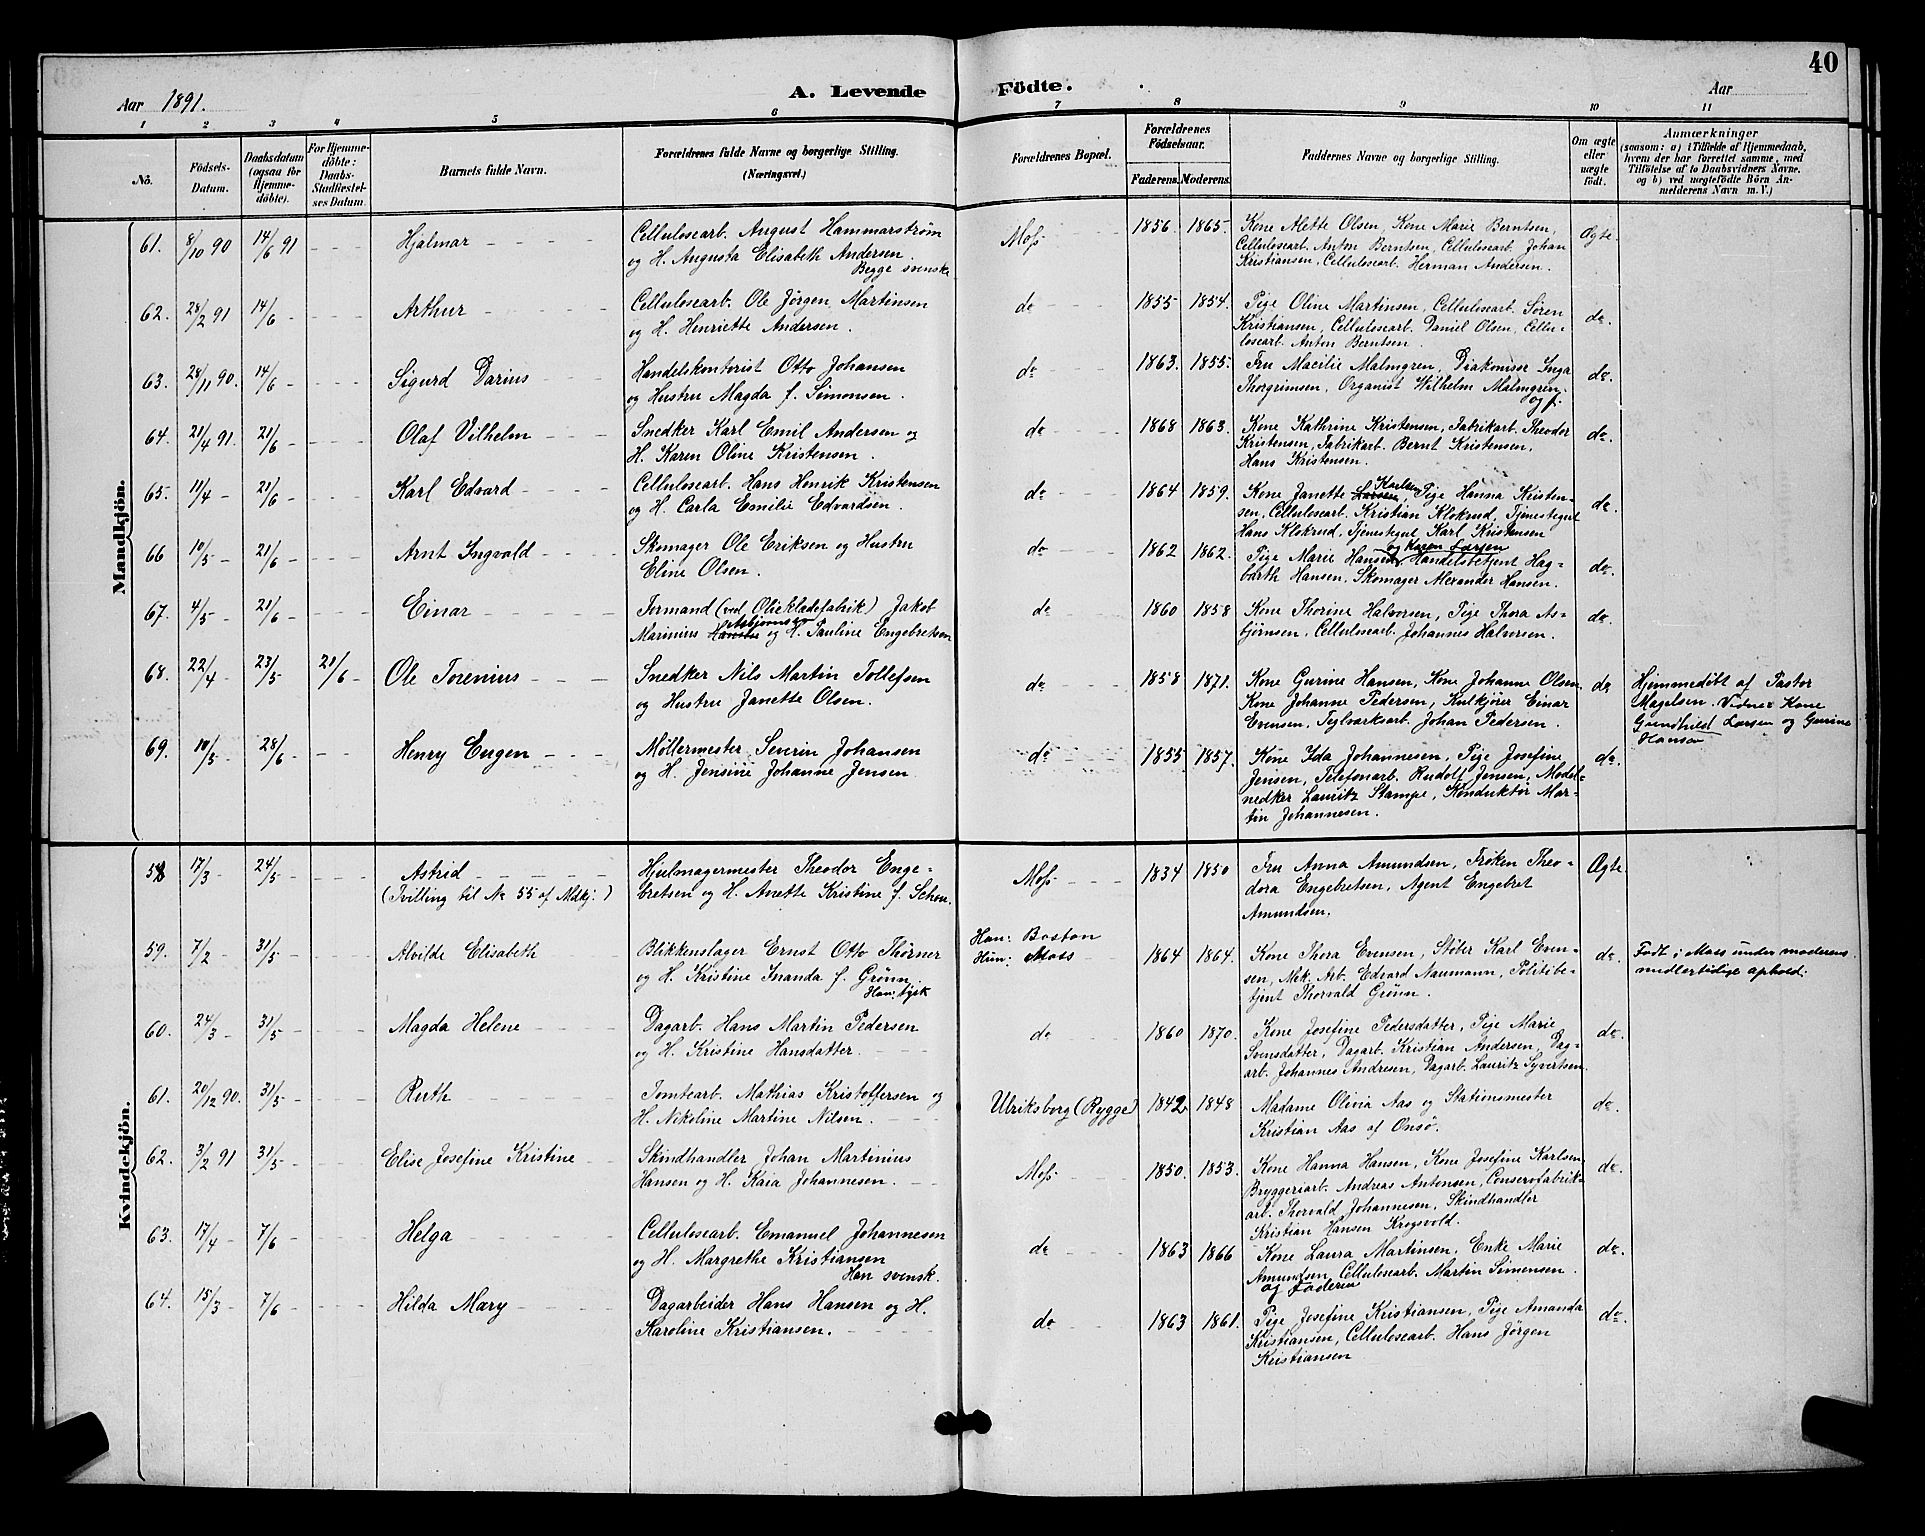 40
Aar 1891.
A. Levende Födte.
Aar
1 2 3 4 5 6 7 8 9 10 11
No.
Födsels-Datum.
Daabsdatum (ogsaa for Hjemme-döbte).
For Hjemme-döbte: Daabs-Stadfæstel-ses Datum.
Barnets fulde Navn.
Forældrenes fulde Navne og borgerlige Stilling. (Næringsvei.)
Forældrenes Bopæl.
Forældrenes Födselsaar.
Faderens. Moderens.
Faddernes Navne og borgerlige Stilling.
Om ægte eller uægte födt.
Anmærkninger
(saasom: a) i Tilfælde af Hjemmedaab,
hvem der har forrettet samme, med
Tilföielse af to Daabsvidners Navne.
og b) ved uægtefödte Börn An-
melderens Navn m. V.)
Mandkjön.
61. 8/10 90 14/6 91 Hjalmar
Cellulosearb. August Hammarstrøm
og H. Augusta Elisabeth Andersen.
Begge svenske
Moss 1856 1865.
Kone Alette Olsen, Kone Marie Berntsen,
Cellulosearb. Anton Berntsen, Cellulosearb. Johan
Kristiansen, Cellulosearb. Herman Andersen.
Ægte
62. 28/2 91 14/6 Arthur
Cellulosearb. Ole Jörgen Martinsen
og H. Henriette Andersen.
do 1855 1854.
Pige Oline Martinsen, Cellulosearb. Sören
Kristiansen, Cellulosearb. Daniel Olsen, Cellu-
losearb. Anton Berntsen.
do.
63. 28/11 90. 14/6 - Sigurd Darius
Handelskontorist Otto Johansen
og Hustru Magda f. Simonsen.
do 1863. 1855.
Fru Macilie Malmgren, Diakonisse Inga
Thorgrimsen, Organist Wilhelm Malmgren.
og f.
do.
64. 21/4 91. 21/6 - Olaf Vilhelm
Snedker Karl Emil Andersen og
H. Karen Oline Kristensen.
do 1868 1863.
Kone Kathrine Kristensen, Fabrikarb. Theodor
Kristensen, Fabrikarb. Bernt Kristensen,
Hans Kristensen.
do.
65. 11/4 - 21/6 - Karl Edvard
Cellulosearb. Hans Henrik Kristensen
og H. Carla Emilie Edvardsen.
do 1864 1859.
Karlsen
Kone Janette Larsen, Pige Hanna Kristen-
sen, Cellulosearb. Kristian Klokrud, Tjenestegut
Hans Klokrud, Tjenestegut Karl Kristensen
do.
66 10/5 - 21/6 - Arnt Ingvald
Skomager Ole Eriksen og Hustru
Eline Olsen.
do 1862 1862.
og Karen Larsen
Pige Marie Hansen, Handelsbetjent Hag-
barth Hansen, Skomager Alexander Hansen.
do.
67. 4/5 - 21/6 - Einar
Formand (ved Oliekladefabrik) Jakob
Asbjörnsen
Marinius Hansen og H. Pauline Engebretsen
do 1860 1858
Kone Thorine Halvorsen, Pige Thora As-
björnsen, Cellulosearb. Johannes Halvorsen.
do.
68. 22/4 - 23/5 21/6 - Ole Torenius
Snedker Nils Martin Tollefsen
og Hustru Janette Olsen.
do 1858 1871.
Kone Gurine Hansen, Kone Johanne Olsen,
Kone Johanne Pedersen, Kulkjører Einar
Evensen, Teglværksarb. Johan Pedersen.
do
Hjemmedöbt af Pastor
Magelsen. Vidner Kone
Gundhild Larsen og Gurine
Hansen
69. 10/5 - 28/6 - Henry Eugen
Møllermester Severin Johansen
og H. Jensine Johanne Jensen
do 1855 1857.
Kone Ida Johannesen, Pige Josefine
Jensen, Telefonarb. Rudolf Jensen, Model-
nedker Lauritz Stampe, Konduktør Mar-
tin Johannesen.
do.
Kvindekjön.
58 17/3 - 24/5 - Astrid
(Tvilling til No 55 af Mdkj.)
Hjulmagermester Theodor Enge-
bretsen og H. Anette Kristine f. Schou.
Moss 1834 1850
Fru Anna Amundsen, Frøken Theo-
dora Engebretsen, Agent Engebret
Amundsen.
Ægte
59. 7/2 - 31/5 - Alvilde Elisabeth
Blikkenslager Ernst Otto Thörner
og H. Kristine Inanda f. Grünn
Han: tysk
Han: Boston
Hun: Moss
1864 1864.
Kone Thora Evensen, Støber Karl Even-
sen, Mek. Arb. Edvard Naumann, Politibe-
tjent Thorvald Grünn.
do.
Födt i Moss under moderens
midlertidige ophold.
60. 24/3 - 31/5 - Magda Helene
Dagarb. Hans Martin Pedersen
og H. Kristine Hansdatter.
do 1860 1870.
Kone Josefine Pedersdatter, Pige Marie
Svensdatter, Dagarb. Kristian Andersen, Dag-
arb. Johannes Andresen, Dagarb. Lauritz Syvertsen
do.
61. 20/12 90. 31/5 - Ruth
Tomtearb. Mathias Kristoffersen og
H. Nikoline Martine Nilsen.
Ulriksborg (Rygge) 1842 1848
Madame Olivia Aas og Stationsmester
Kristian Aas af Onsö.
do.
62. 3/2 91 31/5 - Elise Josefine Kristine
Skindhandler Johan Martinius
Hansen og H. Kaia Johannesen.
Moss 1850. 1853.
Kone Hanna Hansen, Kone Josefine Karlsen
Bryggeriarb. Andreas Antonsen, Conservefabrik-
arb. Thorvald Johannesen, Skindhandler
Kristian Hansen Krogsvold.
do.
63. 17/4 - 7/6 - Helga
Cellulosearb. Emanuel Johannesen
og H. Margrethe Kristiansen
Han svensk.
do 1863 1866
Kone Laura Martinsen, Enke Marie
Amundsen, Cellulosearb. Martin Simensen.
og Faderen
do.
64. 15/3 - 7/6 - Hilda Mary
Dagarbeider Hans Hansen og H.
Karoline Kristiansen.
do 1863 1861.
Pige Josefine Kristiansen, Pige Amanda
Kristiansen, Cellulosearb. Hans Jörgen
Kristiansen
do.